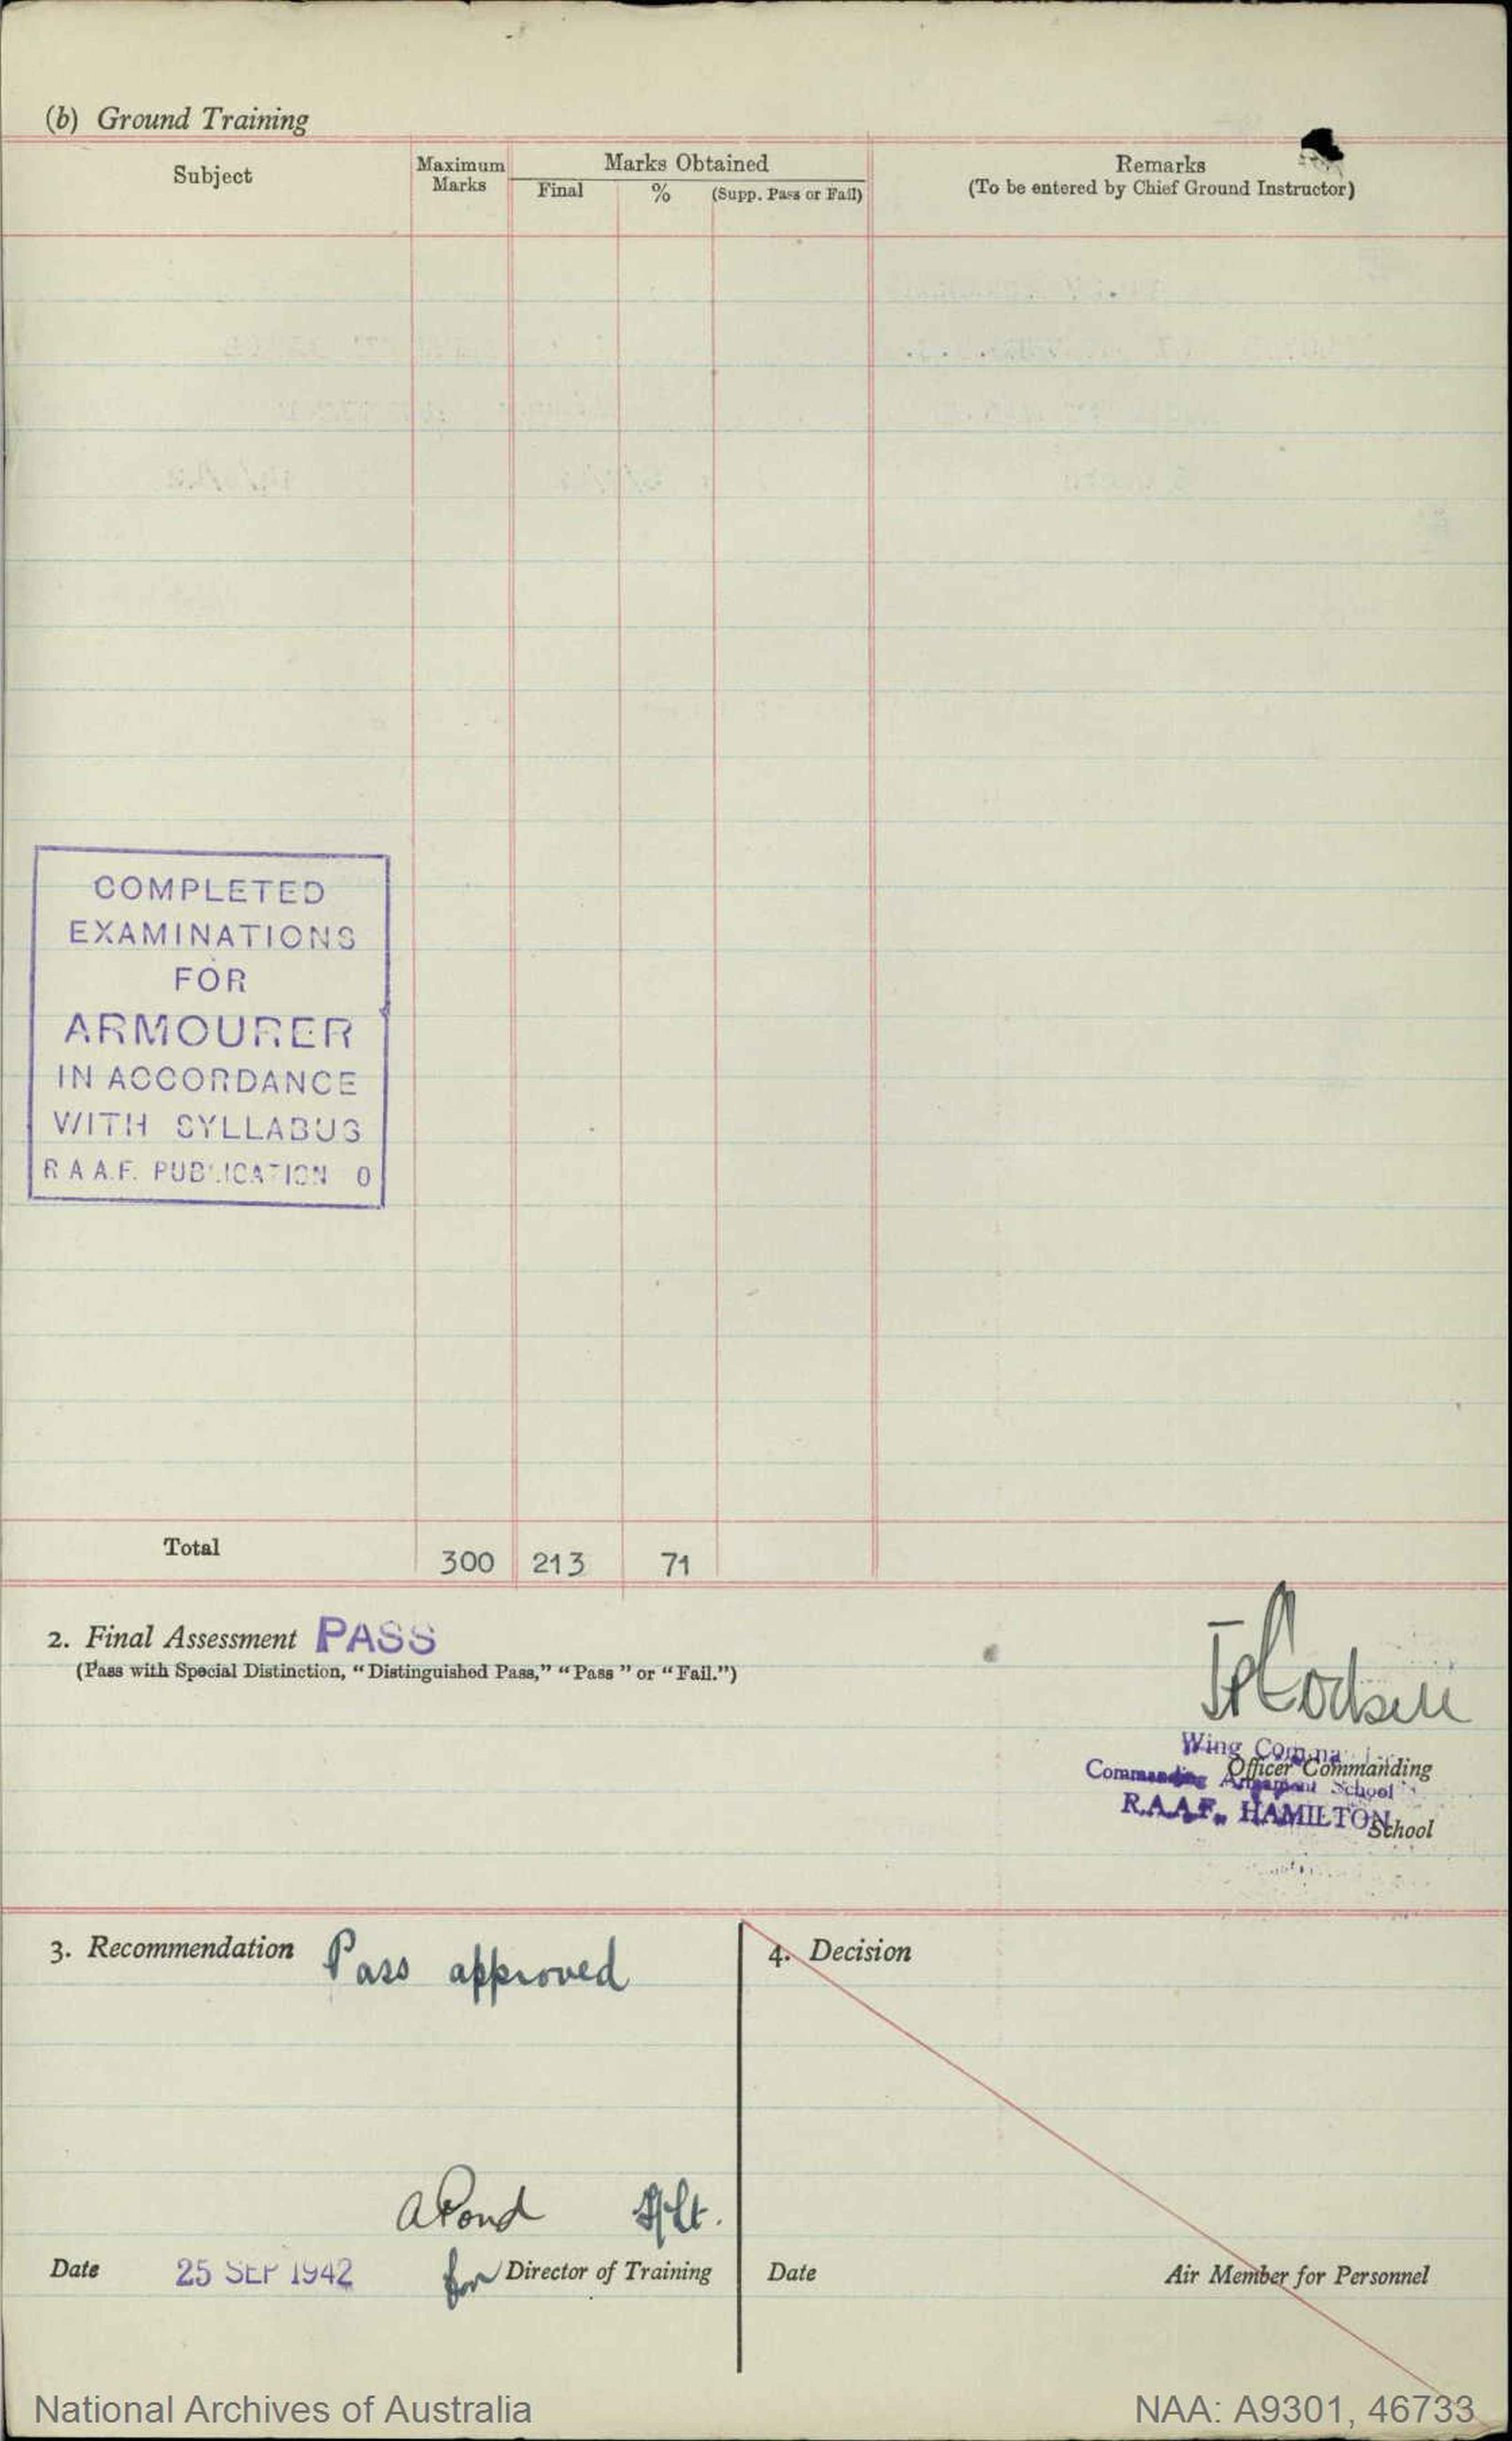 (b) Ground Training
Subject
Maximum
Marks
Marks Obtained
Final
%
(Supp. Pass or Fail)
Remarks
(To be entered by Chief Ground Instructor)
COMPLETED
EXAMINATIONS
FOR
ARMOURER
IN ACCORDANCE
WITH SYLLABUS
R A A.F. PUBLICATION 0
Total 300 213 71
2. Final Assessment PASS
(Pass with Special Distinction, “Distinguished Pass,” “Pass” or “Fail.”)
Wing
Officer Commanding
Commanding Armament School
R.A.A.F. HAMILTON
School
3. Recommendation Pass approved
4. Decision
A Pond F/Lt.
Date 25 SEP 1942 for Director of Training
Date Air Member for Personnel
National Archives of Australia NAA: A9301, 46733